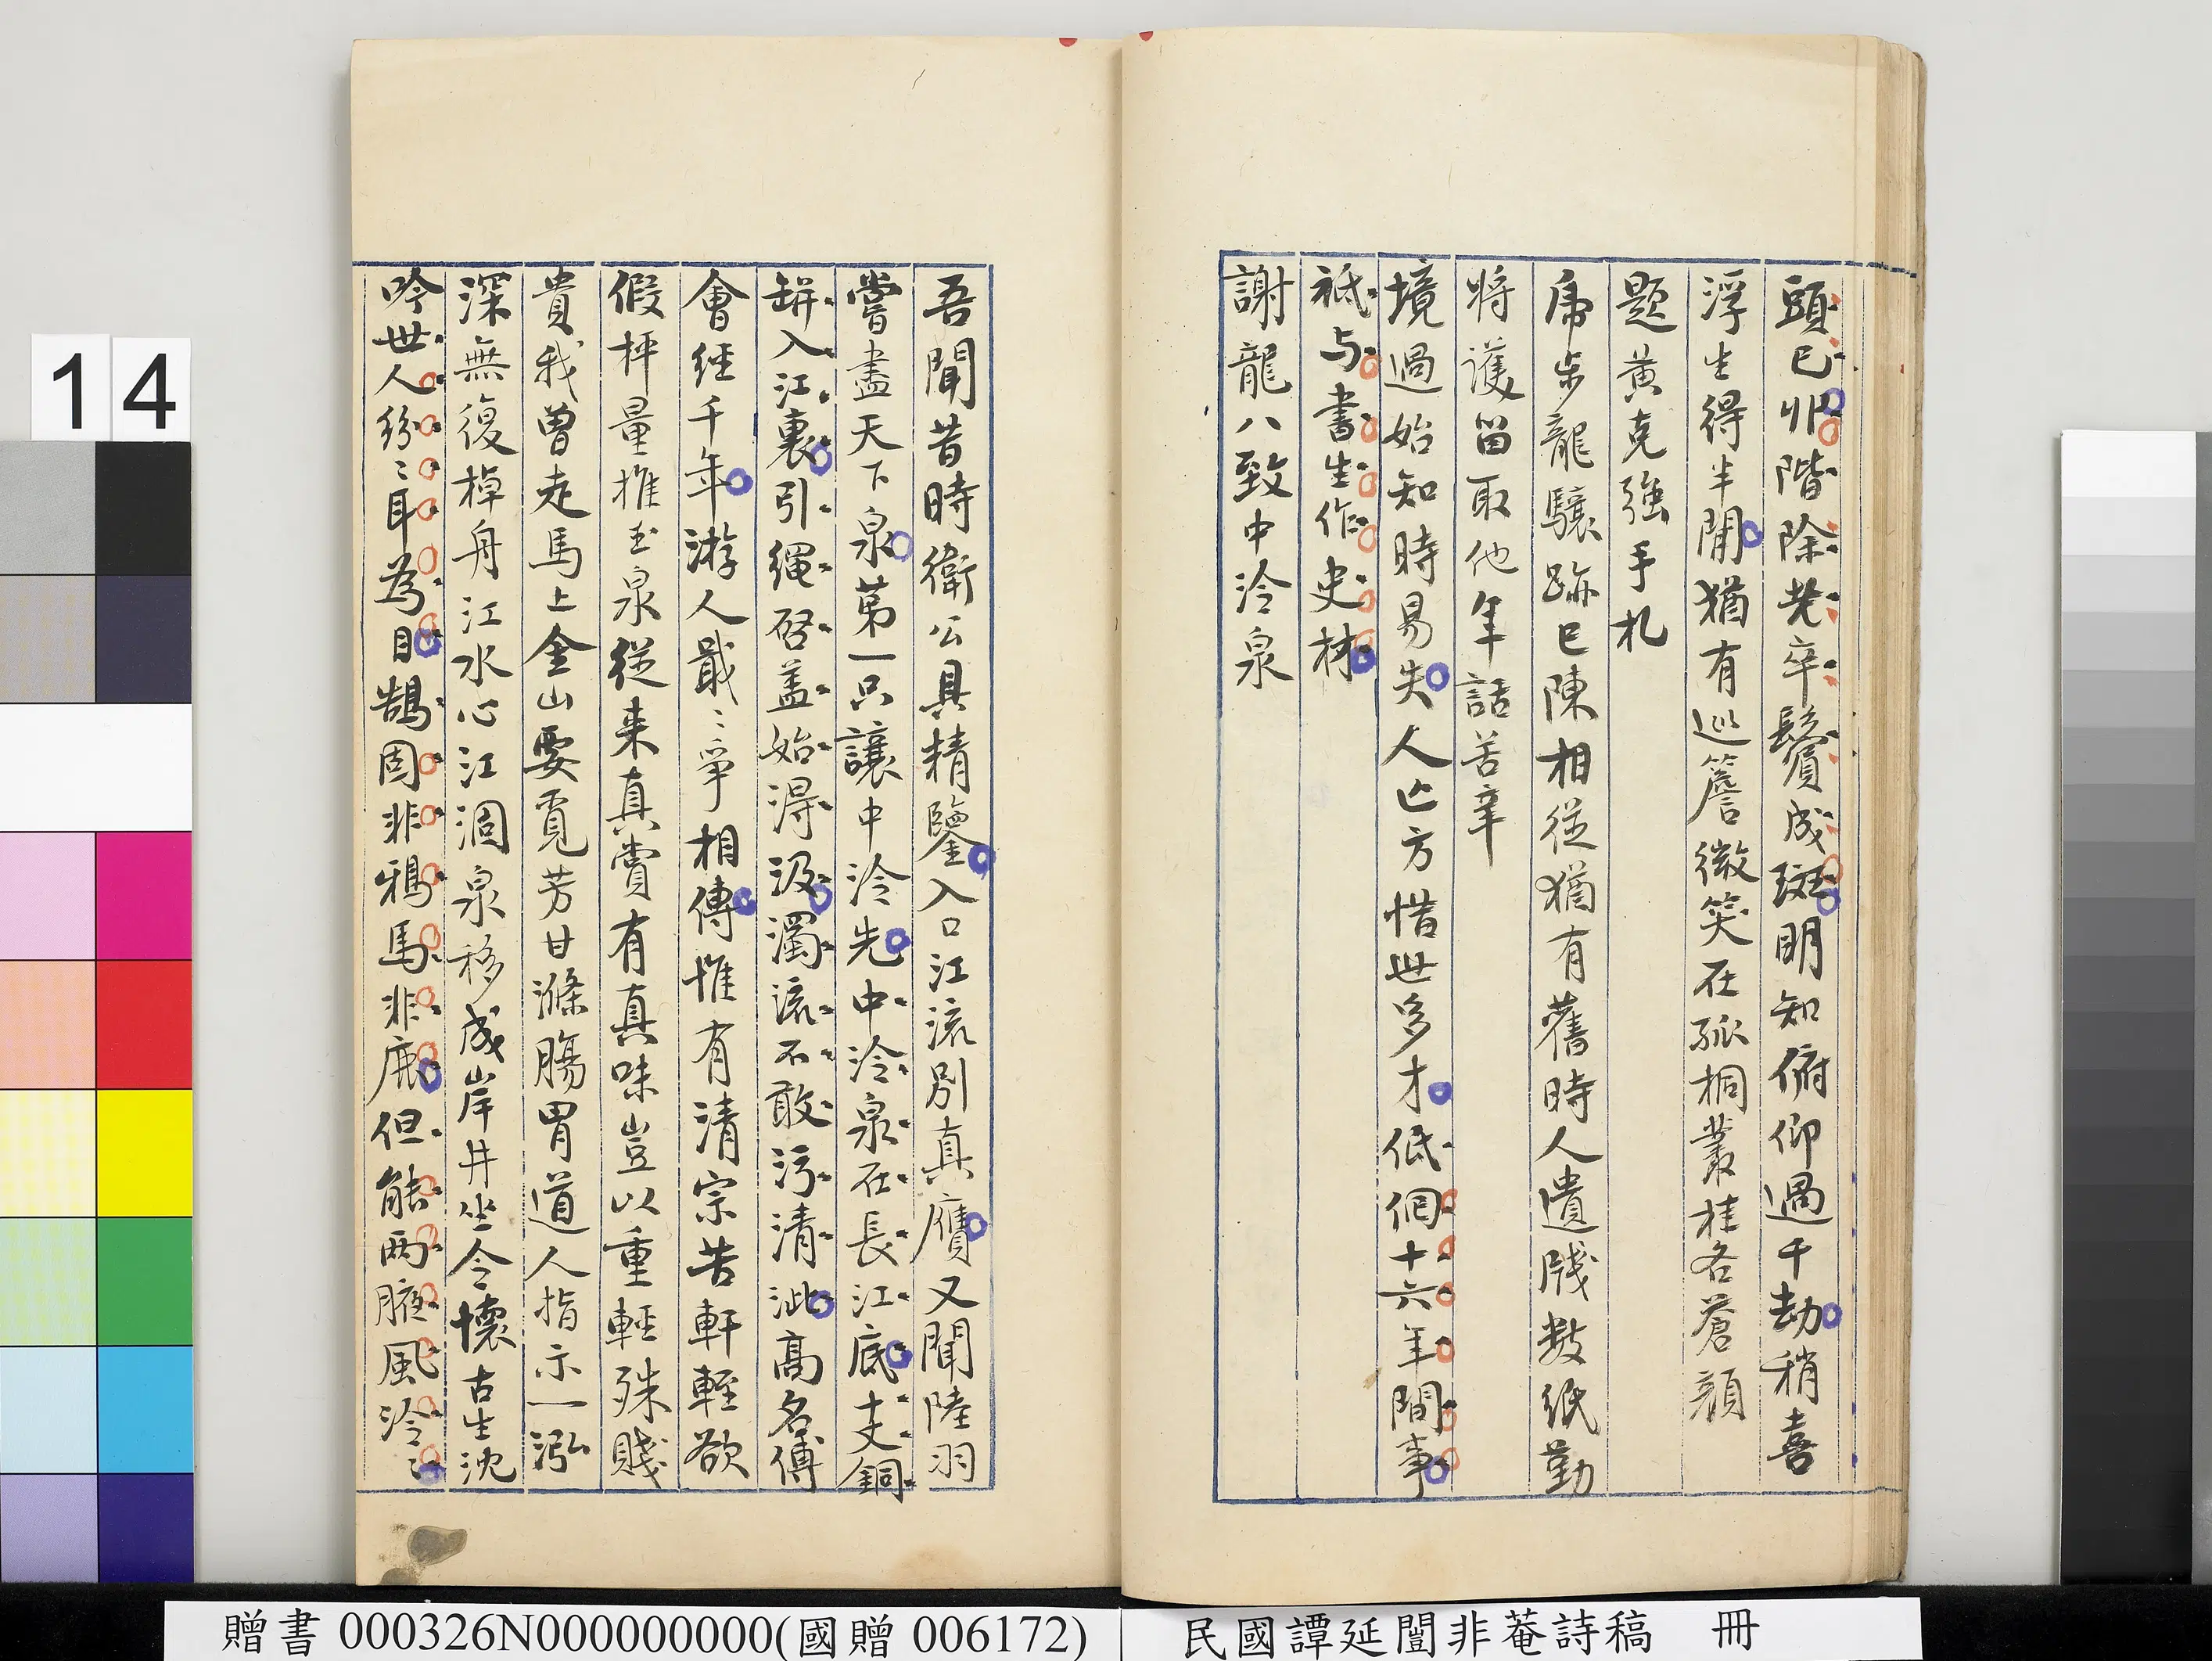 頭已非階除老卒鬢成斑明知俯仰過千劫稍喜
浮生得半閒猶有巡簷微笑在孤桐叢桂各蒼顏
題黃克強手札
虎步龍驤跡已陳相從猶有舊時人遺牋數紙勤
將護留取他年話苦辛
境過始知時易失人亡方惜世多才低佪十六年間事
袛与書生作史材
謝龍八致中泠泉
吾聞昔時衛公具精鑒入口江流別真贗又聞陸羽
嘗盡天下泉第一只讓中泠先中泠泉在長江底丈銅
缾入江裏引繩啓蓋始得汲濁流不敢污清泚高名傳
會經千年游人戢〻爭相傳惟有清宗苦軒輊欲
假枰量推玉泉從来真賞有真味豈以重輕殊賤
貴我曾走馬上金山要覓芳甘滌腸胃道人指示一泓
深無復棹舟江水心江涸泉移成岸井坐令懷古生沈
吟世人紛〻耳為目鵠固非鴉馬非鹿但能兩腋風泠〻
14
贈書 000326N000000000(國贈 006172)
民國譚延闓非菴詩稿 冊